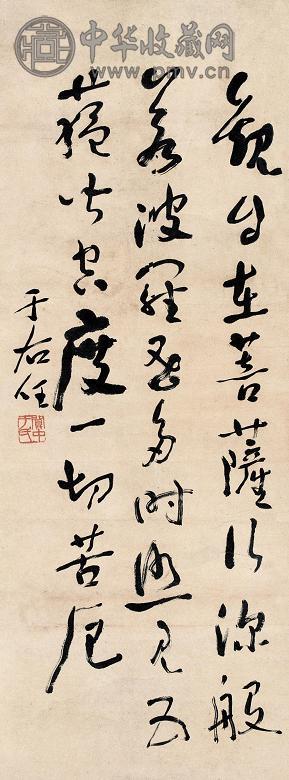 中华收藏网
www.pmv.cn
觀自在菩薩行深般
若波羅蜜多時照見五
蘊皆空度一切苦厄
于右任